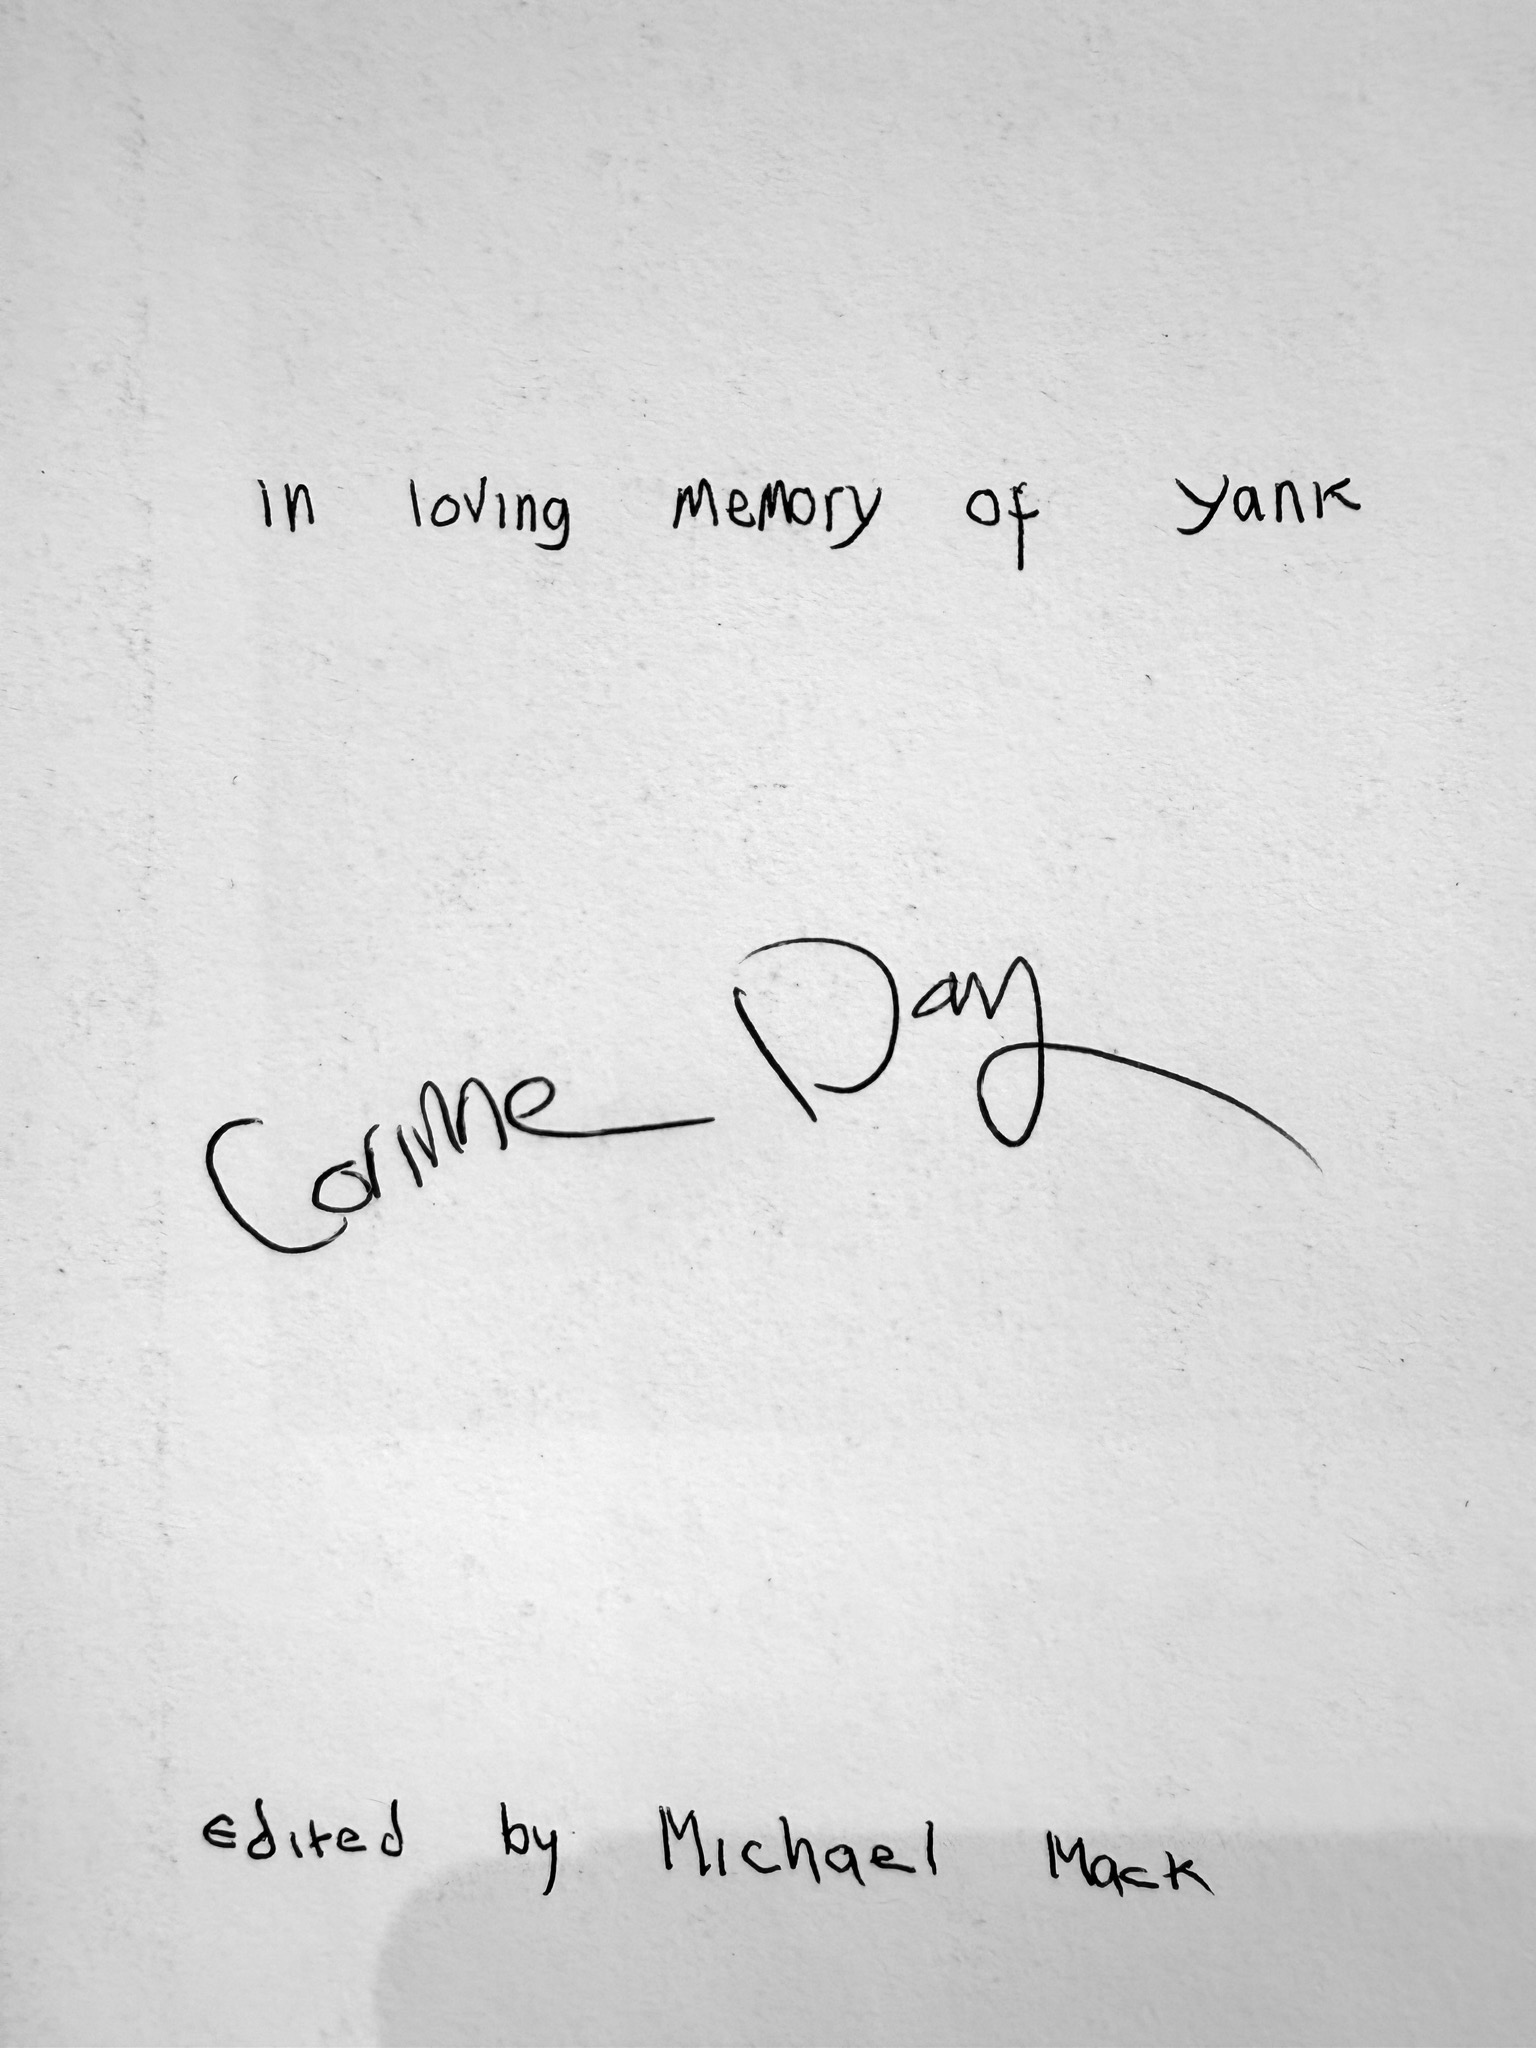 in loving memory of yank
Corinne Day
edited by Michael Mack